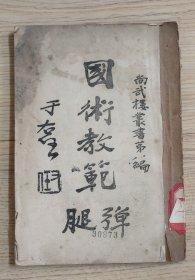 尚武樓叢書第一編
國術教範
彈腿
于右任